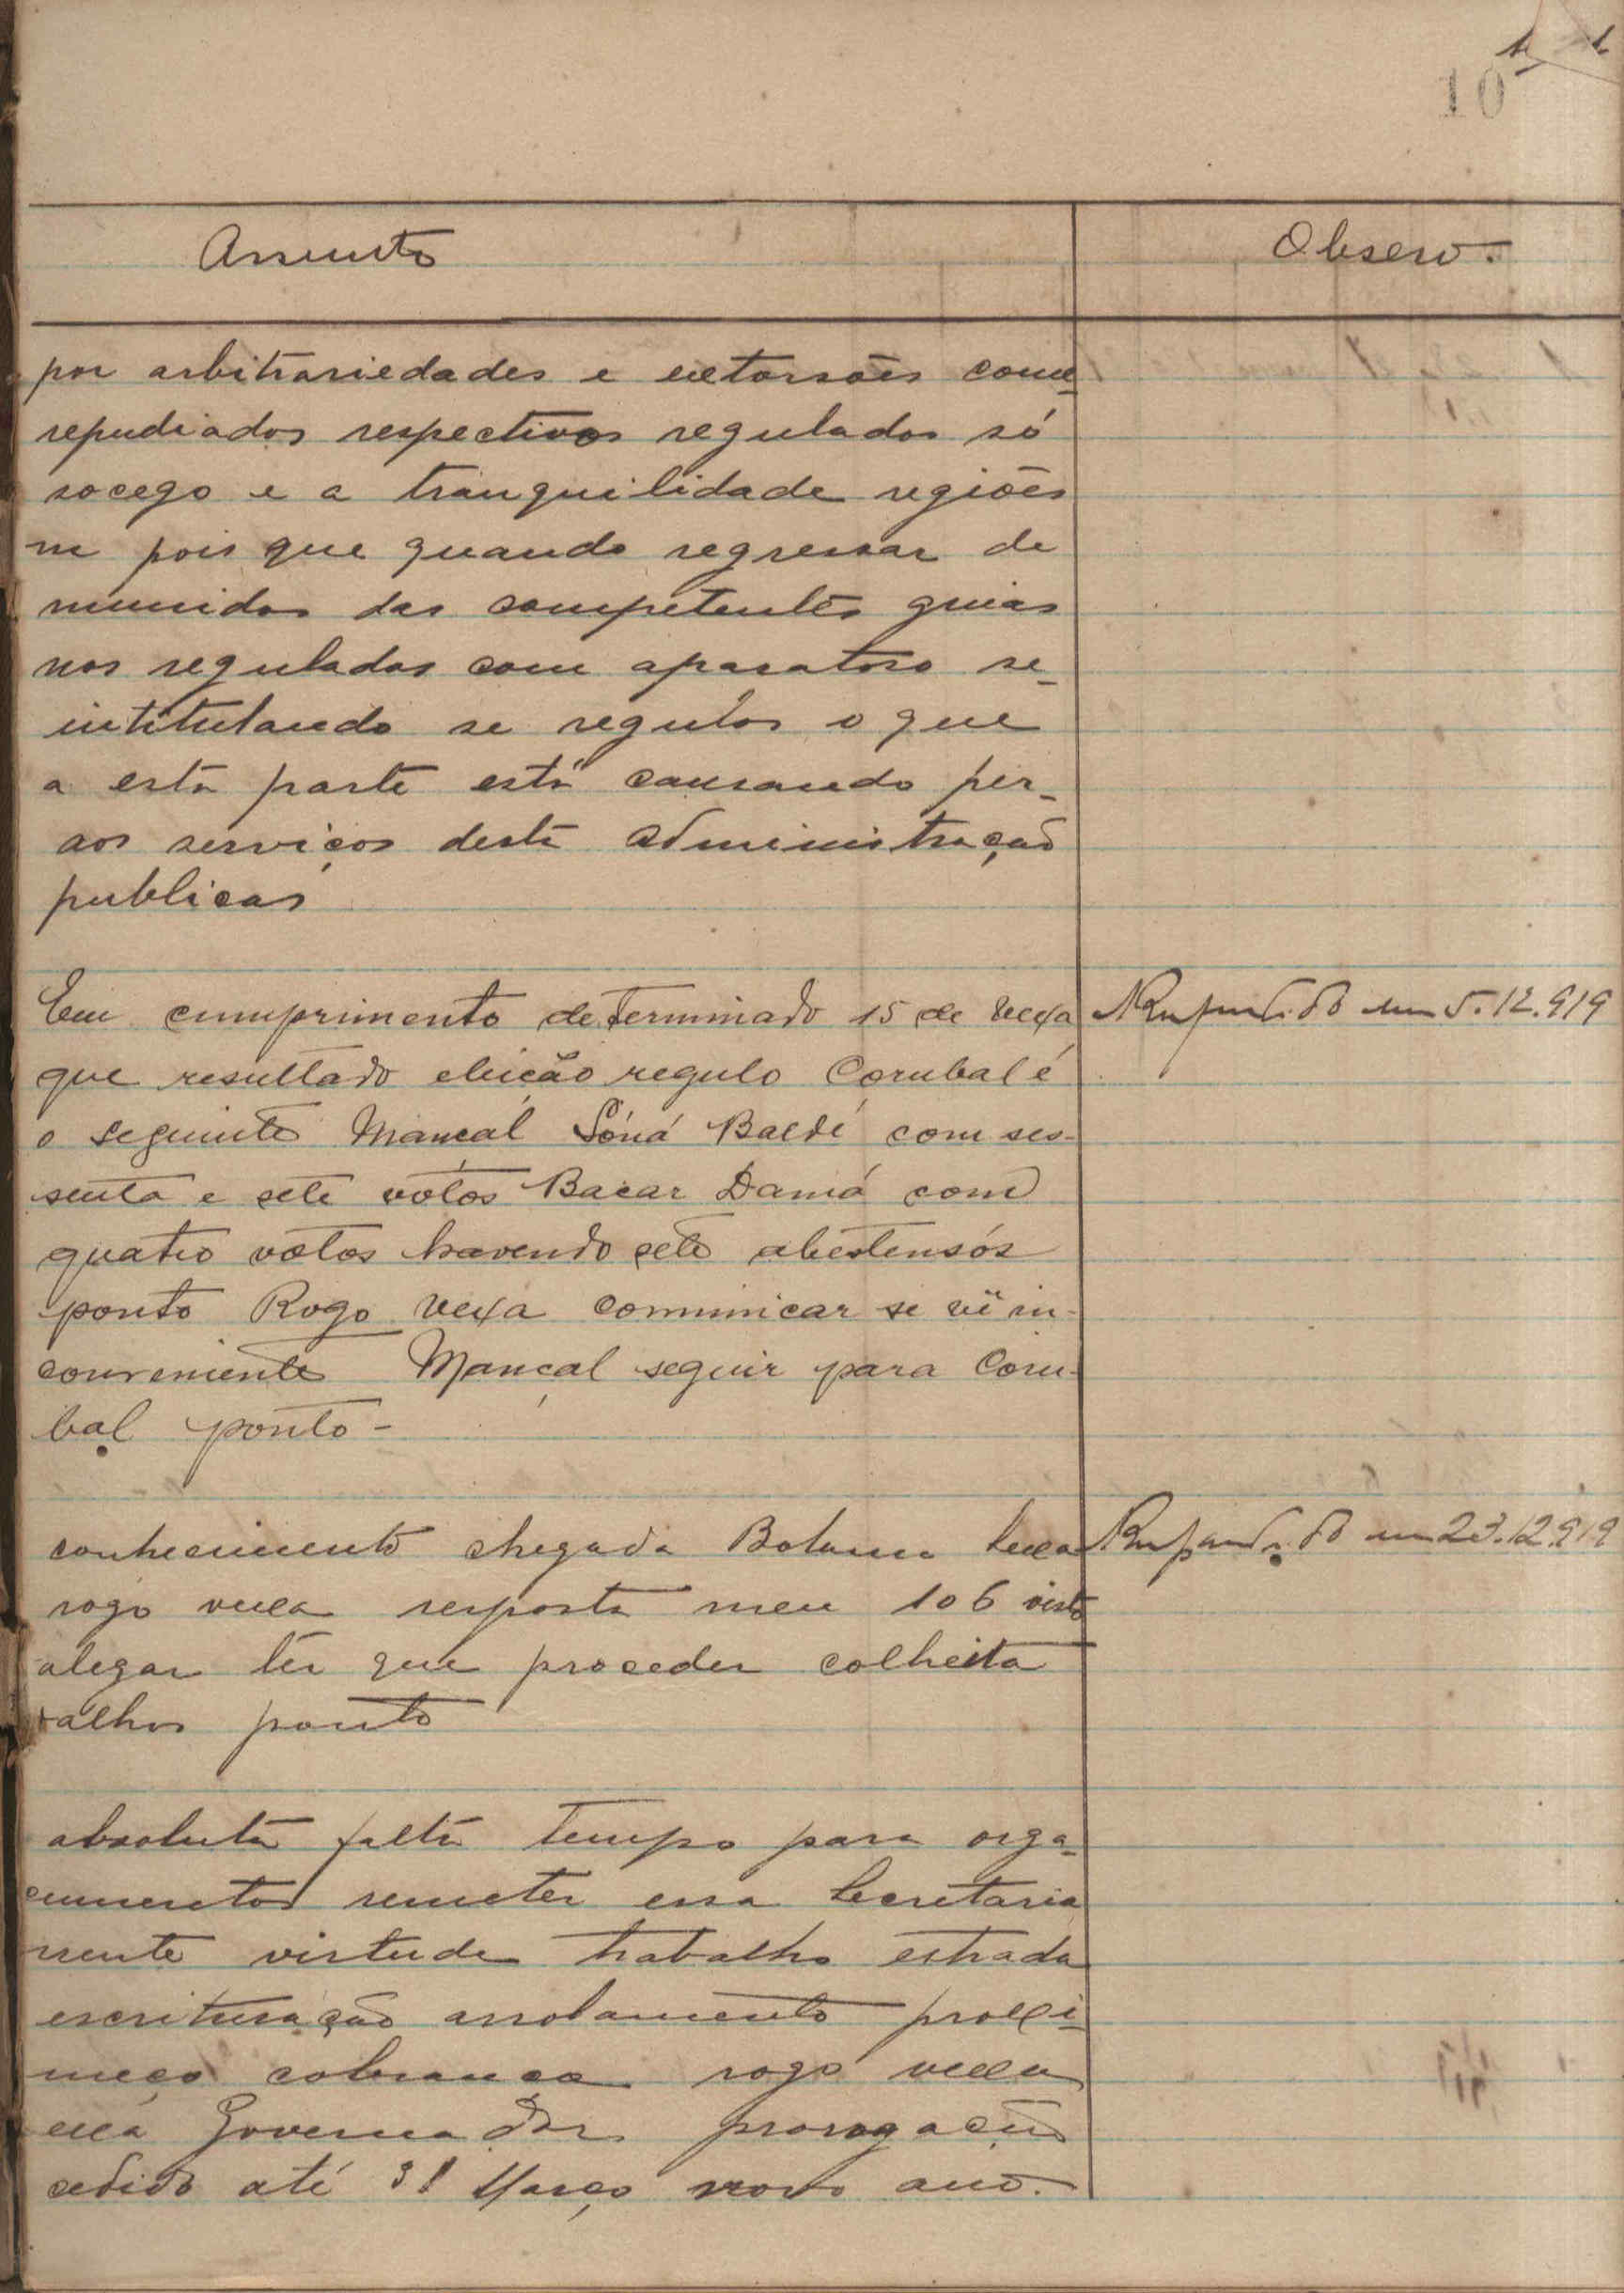 10
Assunto
Observ.
por arbitrariedades e extorsões come-
repudiados respectivos regulados só
socego e a tranquilidade regiões
m pois que quando regressar de
munidos das competentes guias
nos regulados com aparatoso se-
intitulando se regulos o que
a esta parte está causando per-
aos serviços desta administração
publicas
Em cumprimento determinado 15 de Vexa
Respondido em 5.12.919
que resultado eleição regulo Corubal é
o seguinte Mancál Sóná Baldé com ses-
senta e sete votos Bacar Damá com
quatro votos havendo sete abestensós
ponto Rogo Vexa comunicar se vê in-
conveniente Mançal seguir para Coru-
bal ponto -
conhecimento chegada Bolama
Respondido em 23.12.919
rogo vexa resposta meu 106 visto
alegar ter que proceder colheita
alhos ponto
absoluta falta tempo para orga-
cumentos remeter essa Secretaria
mente virtude trabalho estrada
escrituração arrolamento proxi-
meço cobrança rogo vexa
exa Governador prorogação
cedido até 31 Março novo ano.